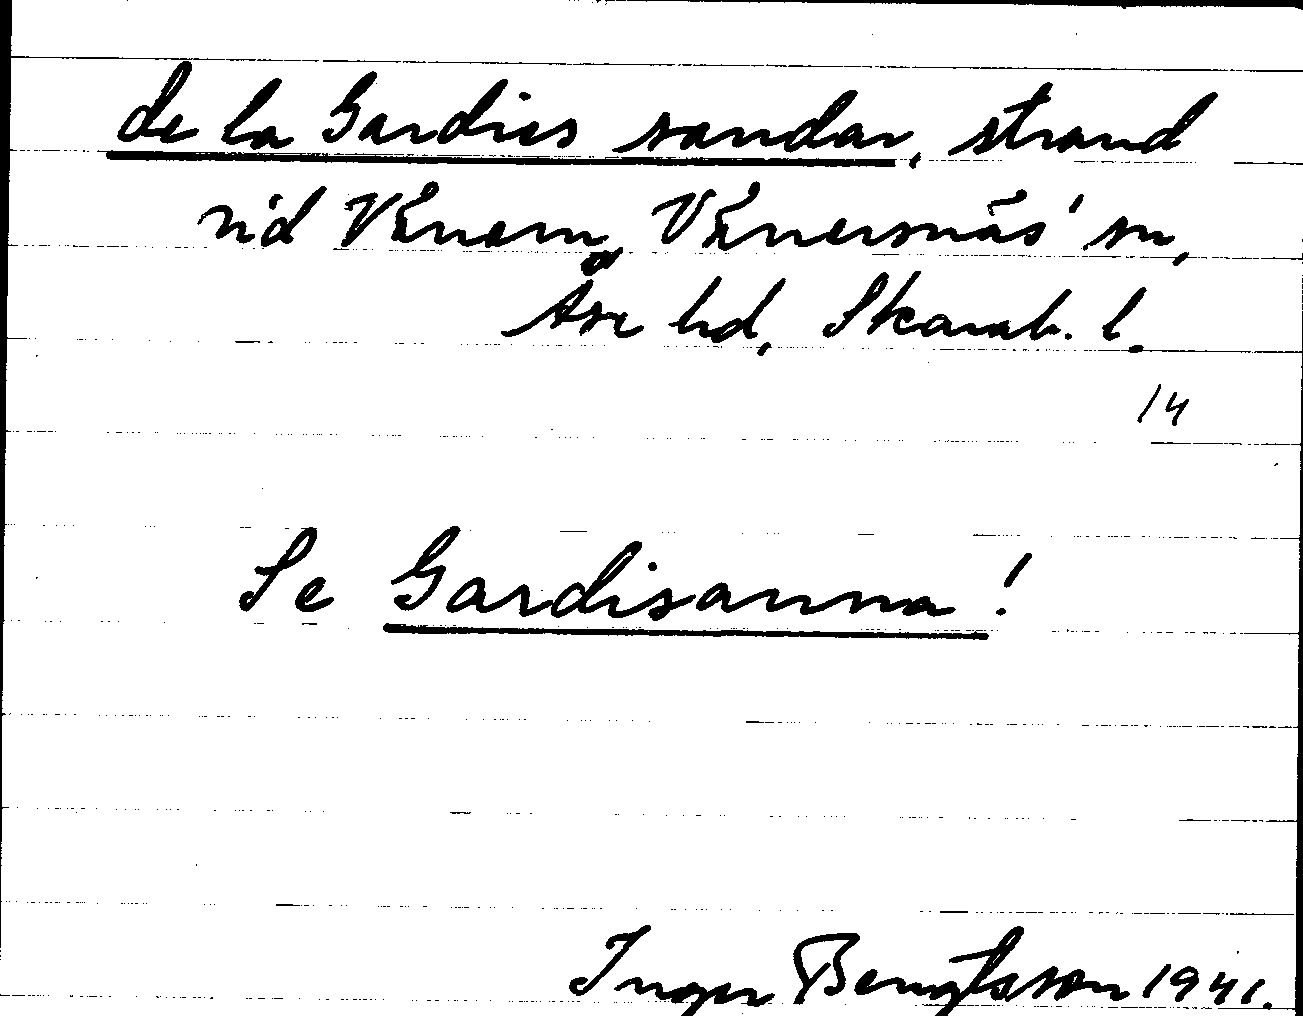 de la Gardies sandar, strand
vid Vänern, Vänersnäs sn,
Åse hd, Skarab. l.
14
Se Gardisanna!
Inger Bengtsson 1941.